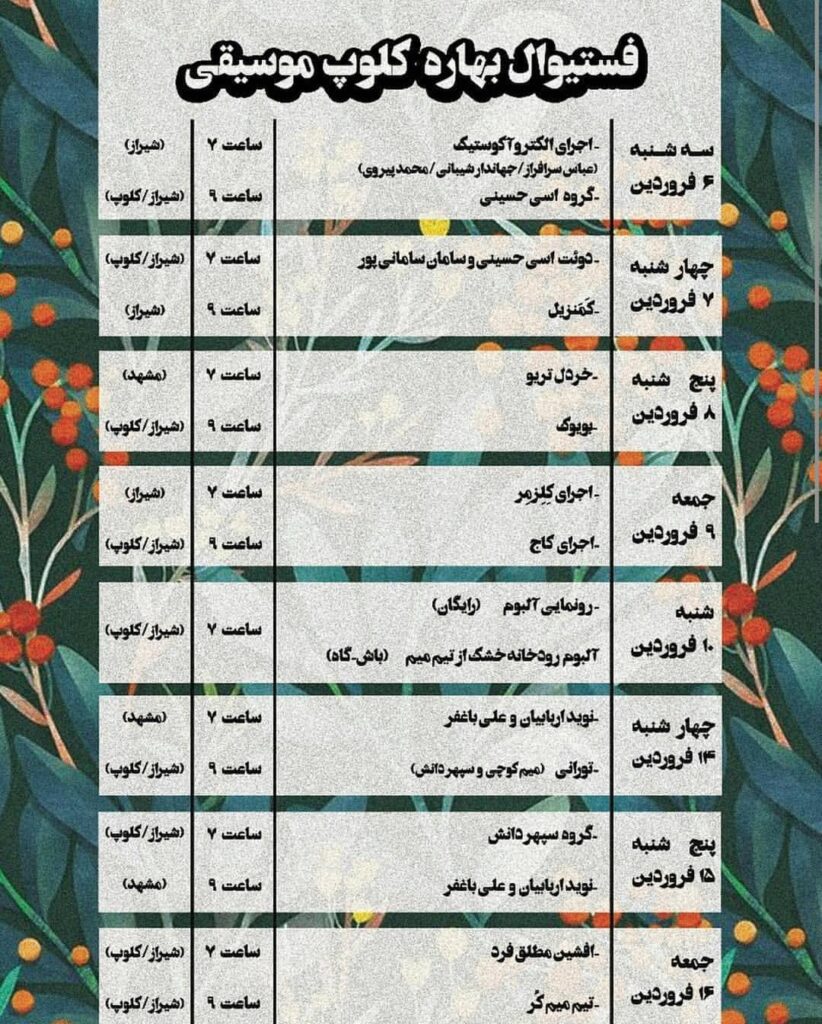 فستیوال بهاره کلوپ موسیقی
سه شنبه
۶ فروردین
-اجرای الکتروآکوستیک
(عباس سرافراز/جهاندار شیبانی/محمد پیروی)
ساعت ۷
(شیراز)
-گروه اسی حسینی
ساعت ۹
(شیراز/کلوپ)
چهار شنبه
۷ فروردین
-دوئت اسی حسینی و سامان سامانی پور
ساعت ۷
(شیراز/کلوپ)
-کَمَنزیل
ساعت ۹
(شیراز)
پنج شنبه
۸ فروردین
-خردل تریو
ساعت ۷
(مشهد)
-بویوک
ساعت ۹
(شیراز/کلوپ)
جمعه
۹ فروردین
-اجرای کِلِزمِر
ساعت ۷
(شیراز)
-اجرای کاج
ساعت ۹
(شیراز/کلوپ)
شنبه
۱۰ فروردین
-رونمایی آلبوم (رایگان)
آلبوم رودخانه خشک از تیم میم (باش-گاه)
ساعت ۷
(شیراز/کلوپ)
چهار شنبه
۱۴ فروردین
-نوید اربابیان و علی باغفر
ساعت ۷
(مشهد)
-تورانی (میم کوچی و سپهر دانش)
ساعت ۹
(شیراز/کلوپ)
پنج شنبه
۱۵ فروردین
-گروه سپهر دانش
ساعت ۷
(شیراز/کلوپ)
-نوید اربابیان و علی باغفر
ساعت ۹
(مشهد)
جمعه
۱۶ فروردین
-افشین مطلق فرد
ساعت ۷
(شیراز/کلوپ)
-تیم میم کُر
ساعت ۹
(شیراز/کلوپ)